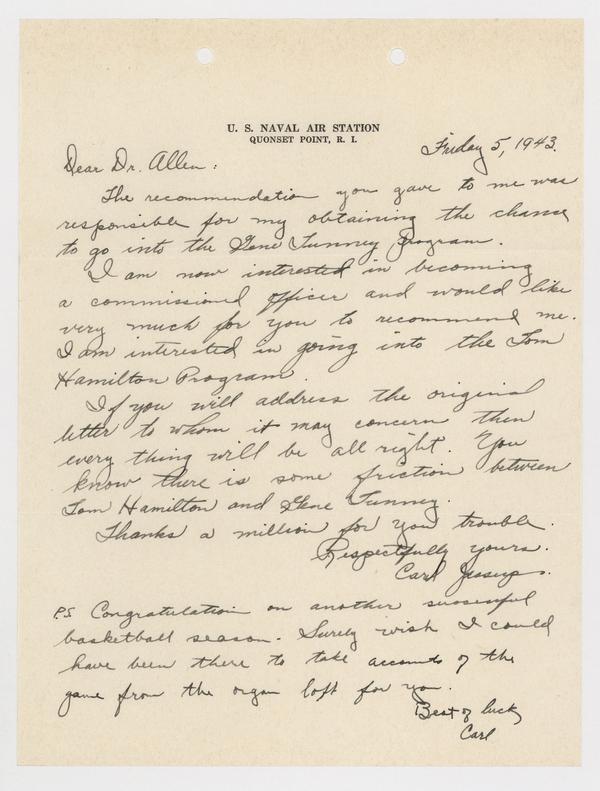 U. S. NAVAL AIR STATION
QUONSET POINT, R. I.
Friday 5, 1943.
Dear Dr. Allen:
The recommendation you gave to me was
responsible for my obtaining the chance
to go into the Gene Tunney Program.
I am now interested in becoming
a commissioned officer and would like
very much for you to recommend me.
I am interested in going into the Tom
Hamilton Program.
If you will address the original
letter to whom it may concern then
every thing will be all right. You
know there is some friction between
Tom Hamilton and Gene Tunney.
Thanks a million for you trouble.
Respectfully yours.
Carl Jessup.
P.S. Congratulation on another successful
basketball season. Surely wish I could
have been there to take accounts of the
game from the organ loft for you.
Best of luck
Carl